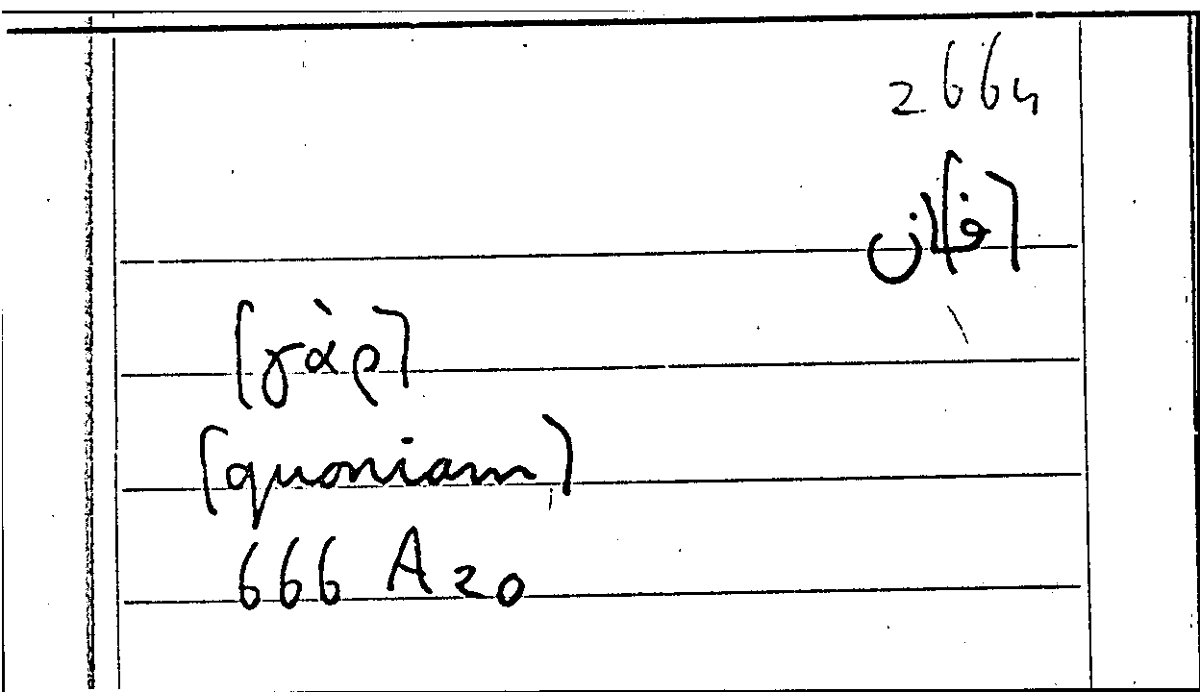 2664
[ف]ان
[γὰρ]
[quoniam]
666 A 20